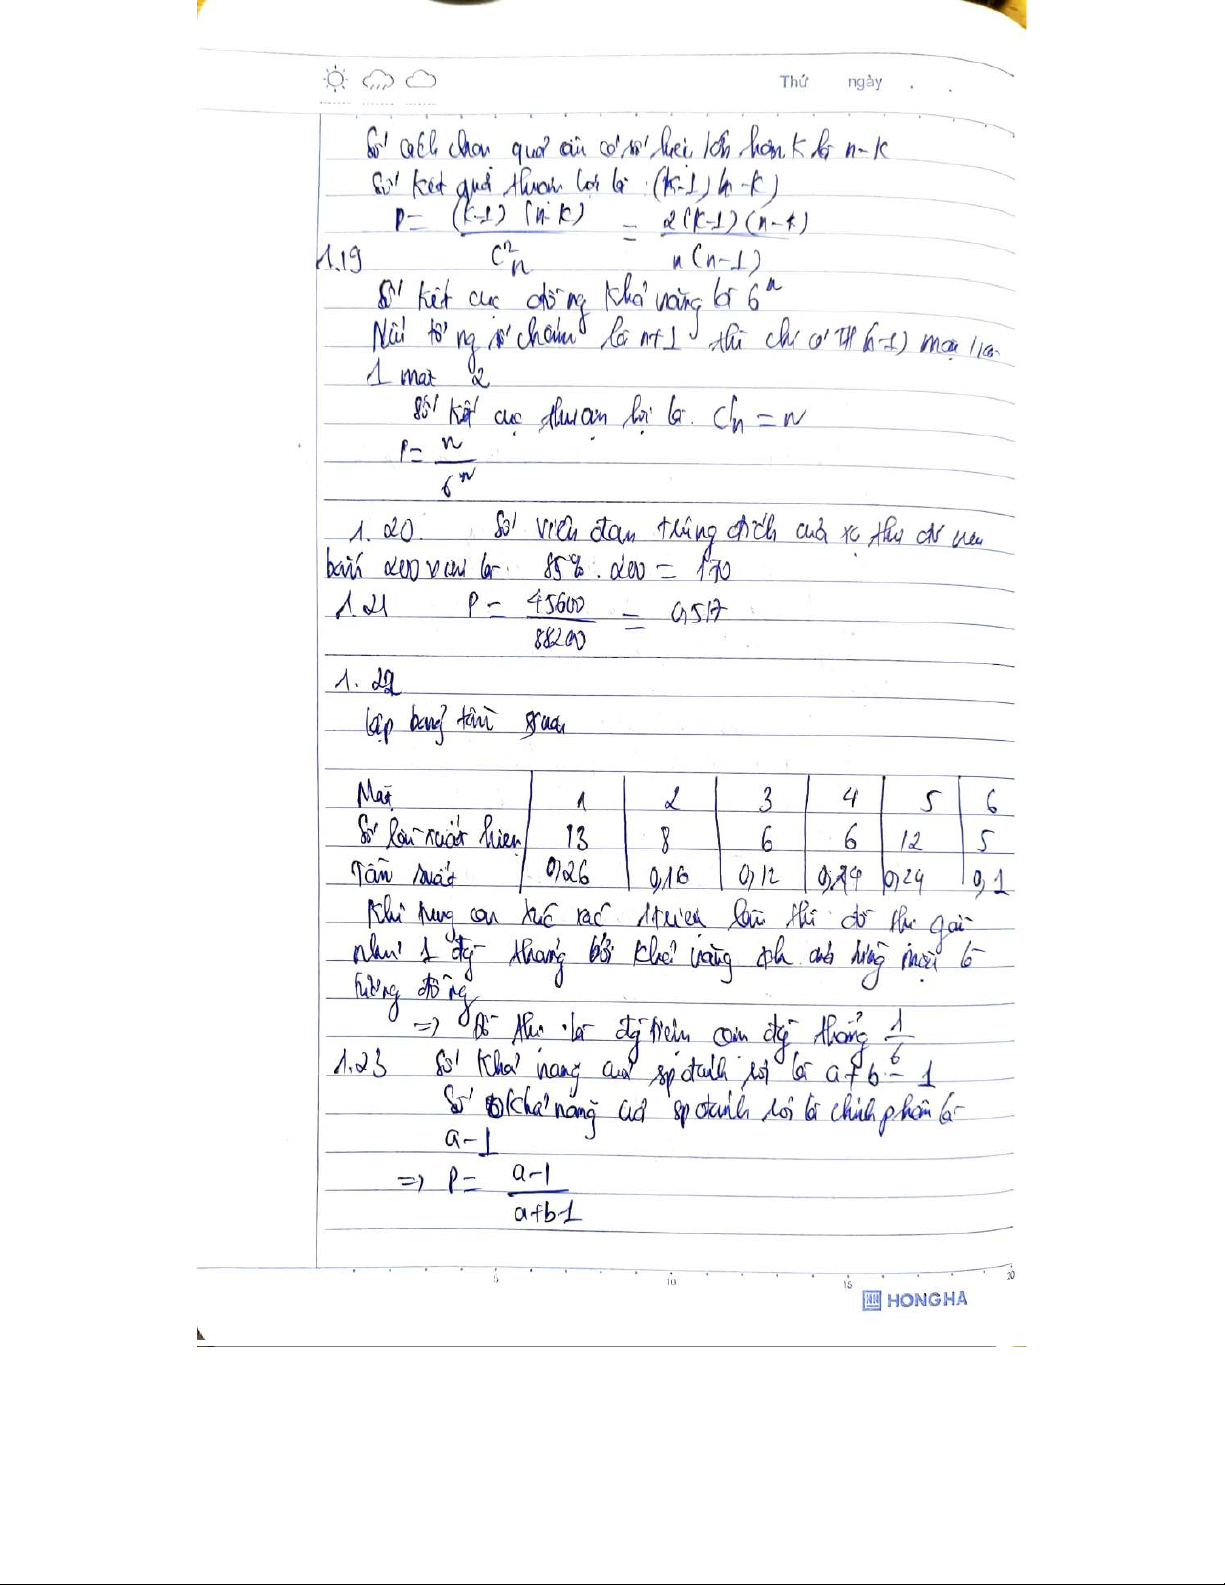 Thứ ngày . .
Số cách chọn quả cầu có số hiệu lớn hơn K là n-k
Số kết quả thuận lợi là: (k-1)(n-k)
P= (k-1)(n-k) / C²n = 2(k-1)(n-k) / n(n-1)
1.19
Số kết cục đồng khả năng là 6ⁿ
Nếu tổng số chấm là n+1 thì chỉ có (n-1)
1 mặt 2
Số kết cục thuận lợi là C¹n = n
P= n / 6ⁿ
1.20. Số viên đạn trúng đích của xạ thủ đó nếu
bắn 200 viên là 85% . 200 = 170
1.21 P= 45600 / 88200 = 0,517
1.22
Lập bảng tần suất
Mặt 1 2 3 4 5 6
Số lần xuất hiện 13 8 6 6 12 5
Tần suất 0,26 0,16 0,12 0,24 0,1
Khi tung con xúc xắc lần thì đồ thị gần
như 1 đg thẳng bởi khả năng của từng mặt là
tương đồng
=> Đồ thị là đg thẳng 1/6
1.23 Số khả năng của sp đánh rơi là a+b-1
Số khả năng của sp đánh rơi là chính phẩm là
a-1
=> P= a-1 / a+b-1
5 10 15 20
HONG HA